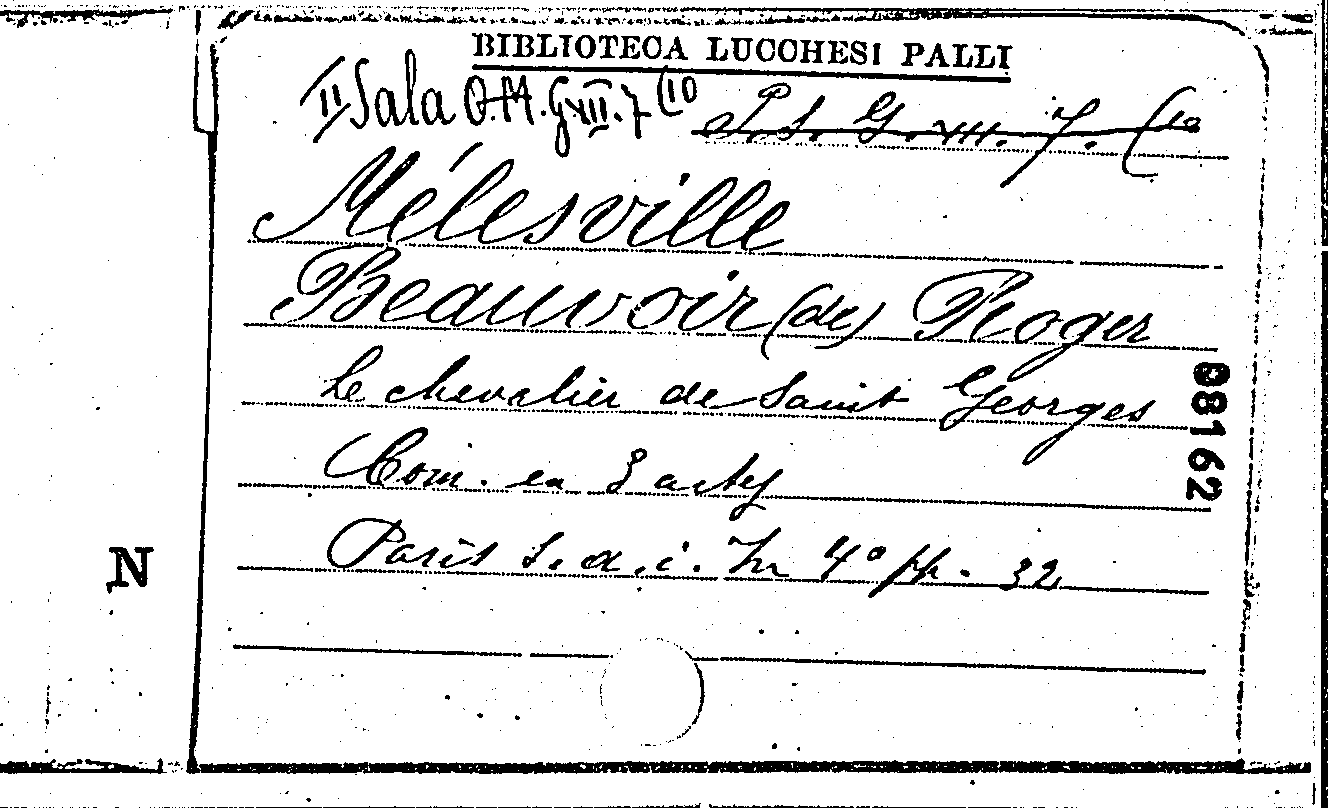 BIBLIOTECA LUCCHESI PALLI
II Sala O.M. G.XIII.7 (10 P.S. G.XIII. 7. (10
Mélesville
Beauvoir (de) Roger
Le chevalier de Saint Georges
88162
Com. en 3 actes
Paris s. a. i. In 4° pp. 32
N